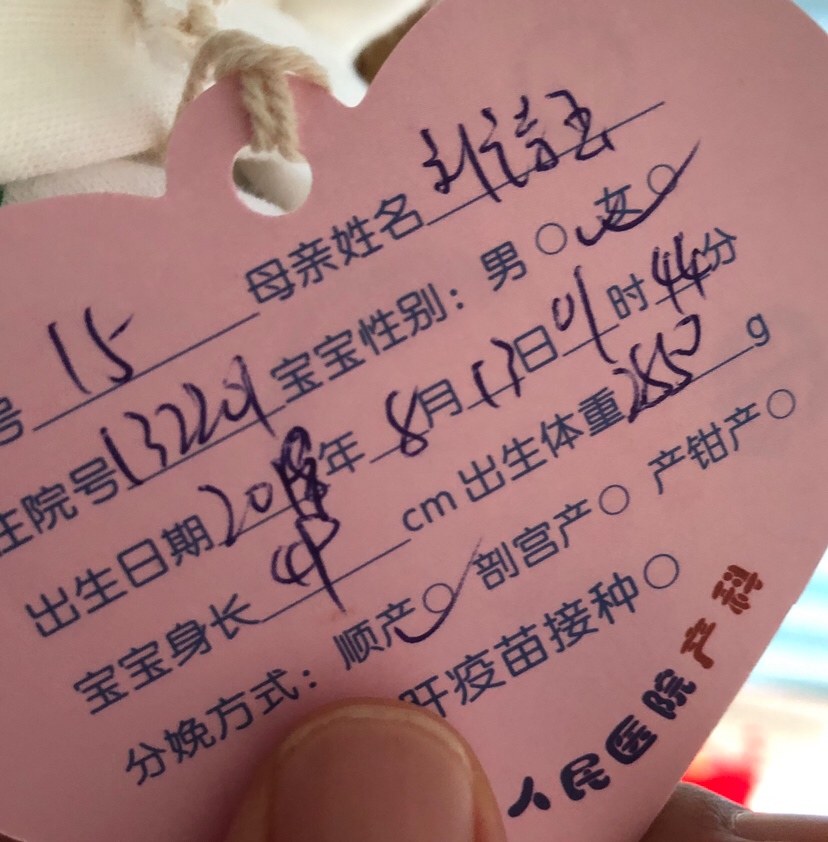 母亲姓名
号 15 宝宝性别：男 女
住院号 132201 出生日期 20 年 8 月 17 日 01 时 44 分
宝宝身长 cm 出生体重 2850 g
分娩方式：顺产 剖宫产 产钳产
肝疫苗接种
人民医院产科